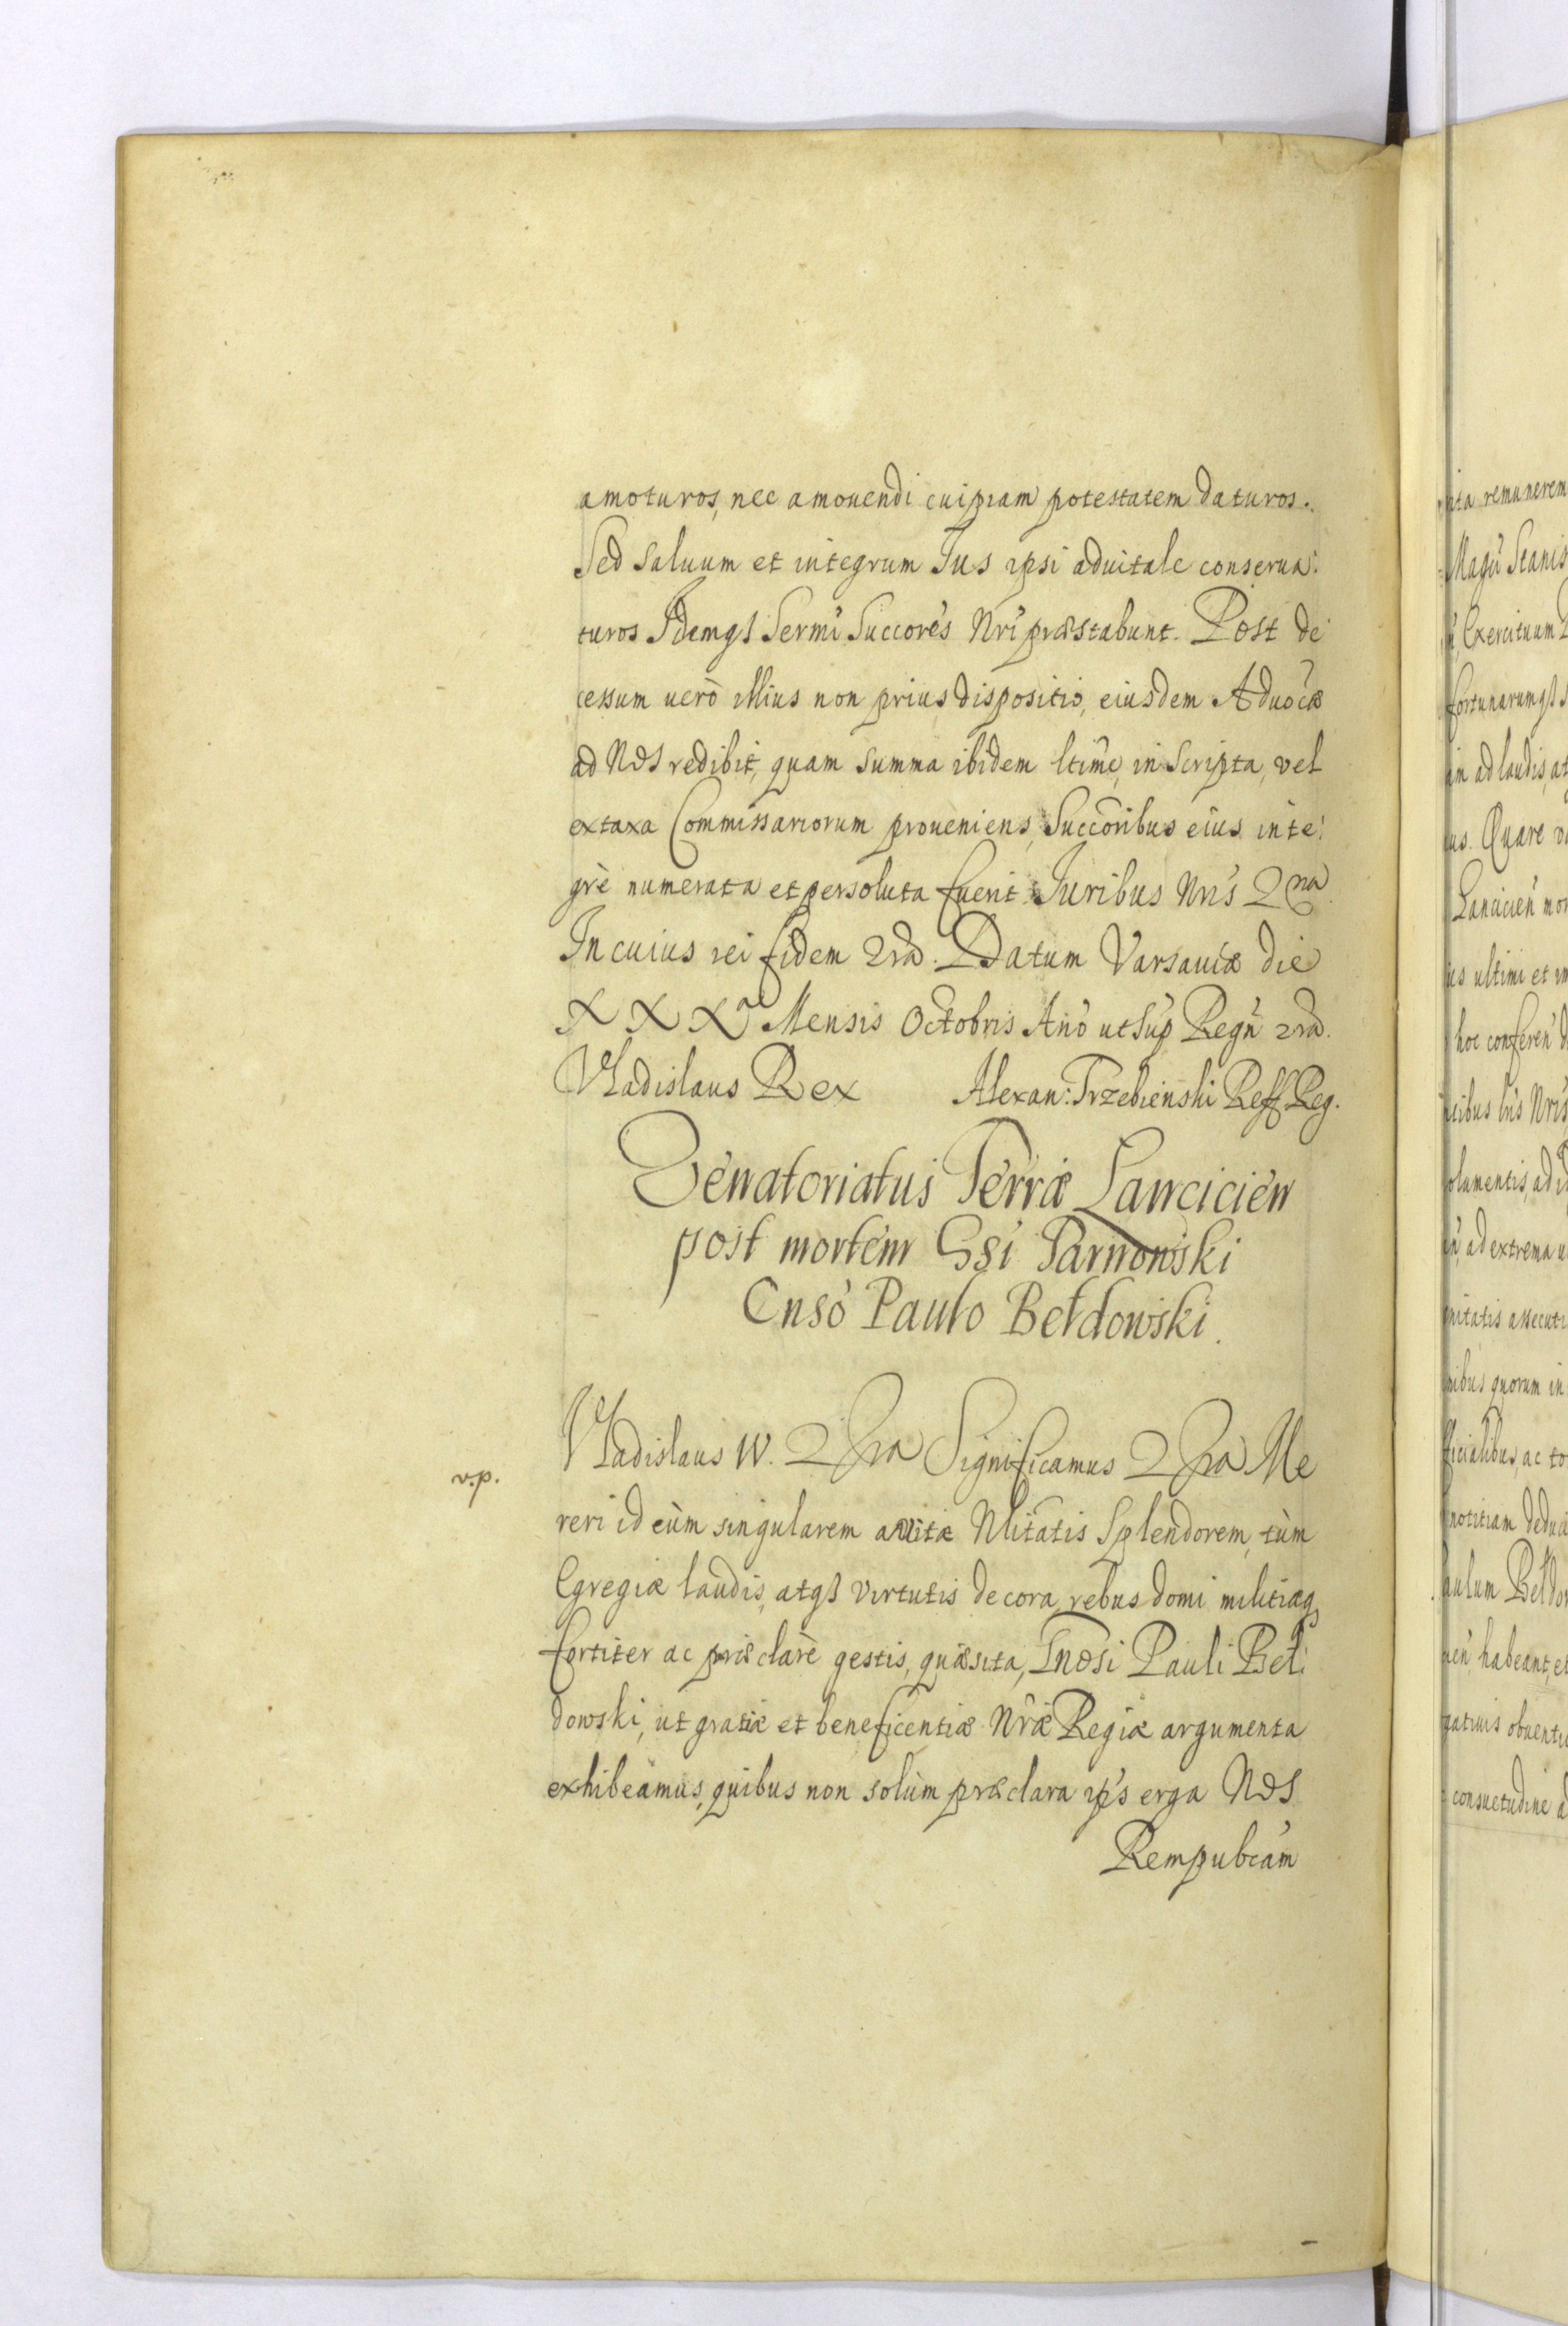 amoturos, nec amouendi cuipiam potestatem daturos.
Sed saluum et integrum Jus ipsi aduitale conserua:
turos Idemqȝ Sermi Succores Nri præstabunt. Post de
cessum uerò illius non prius dispositio, eiusdem Aduocæ
ad Nos redibit, quam summa ibidem ltime, inscripta, vel
extaxa Commissariorum proueniens, Succoribus eius inte:
grè numerata et persoluta fuerit Juribus Nris 2na
In cuius rei fidem 2ra. Datum Varsauiæ die
XXXa Mensis Octobris Ano ut sup Regn 2ra.
Vladislaus Rex Alexan: Trzebienski Reff. Reg.
Venatoriatus Terræ Lancicien
post mortem Gsi Tarnowski
Gnso Paulo Bełdowski.
v.p.
Vladislaus IV. 2ra Significamus 2ra Me
reri id cùm singularem auitæ Nlitatis Splendorem, tùm
Egregiæ laudis, atqȝ virtutis decora, rebus domi militiæqȝ
fortiter ac præclarè gestis, quæsita, Gnosi Pauli Beł:
dowski, ut gratiæ et beneficentiæ Nræ Regiæ argumenta
exhibeamus, quibus non solùm præclara ips erga Nos
Rempubcam
remunerem
Magci Stanis
Exercituum
fortunarumqȝ
ad laudis, at
Quare
Lancicien
ultimi et
hoc conferen
Nris
ad extrema
nitatis assecuti
quorum in
ac to
notitiam deduci
habeant, et
obuenti
consuetudine